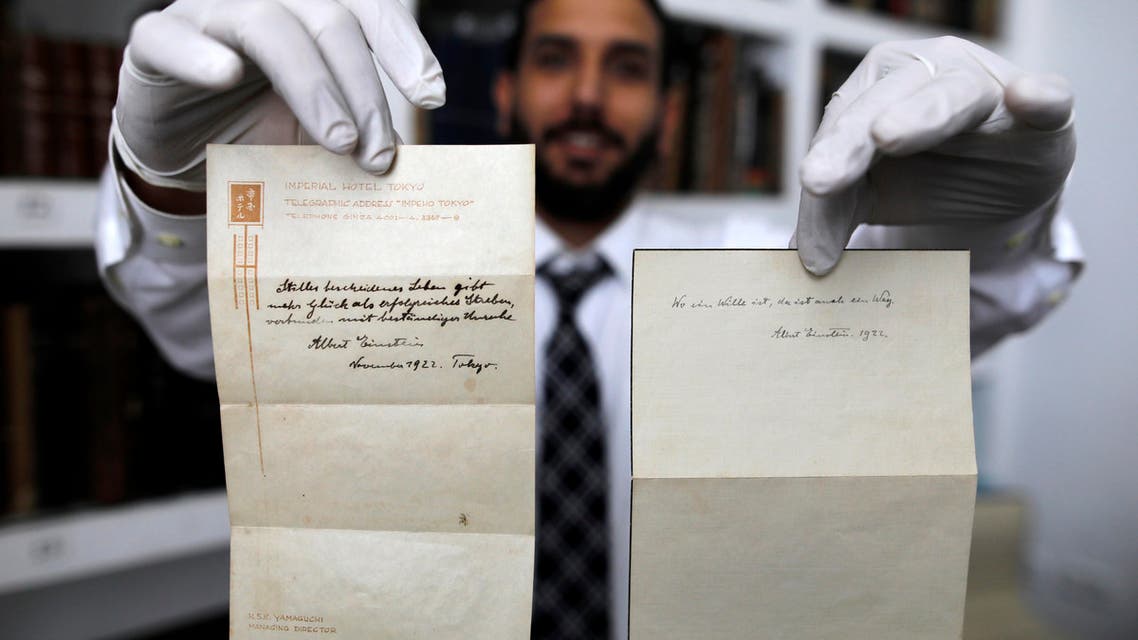 帝国
ホテル
IMPERIAL HOTEL TOKYO
TELEGRAPHIC ADDRESS "IMPEHO TOKYO"
TELEPHONE GINZA
Stilles bescheidenes Leben gibt
mehr Glück als erfolgreiches Streben,
verbunden mit beständiger Unruhe
Albert Einstein
November 1922. Tokyo.
YAMAGUCHI
MANAGING DIRECTOR
Wo ein Wille ist, da ist auch ein Weg.
Albert Einstein. 1922.